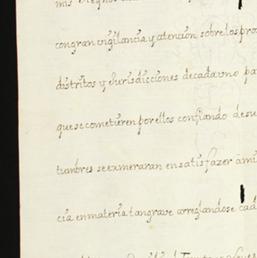 mis
congran vigilancia y atencion sobre los pro
distritos y Jurisdicciones decadavno pa
que se cometieren por ellos confiando desu
tumbres se esmeraran en satisfazer âmi
cia en materia tangrave arreglandose cad